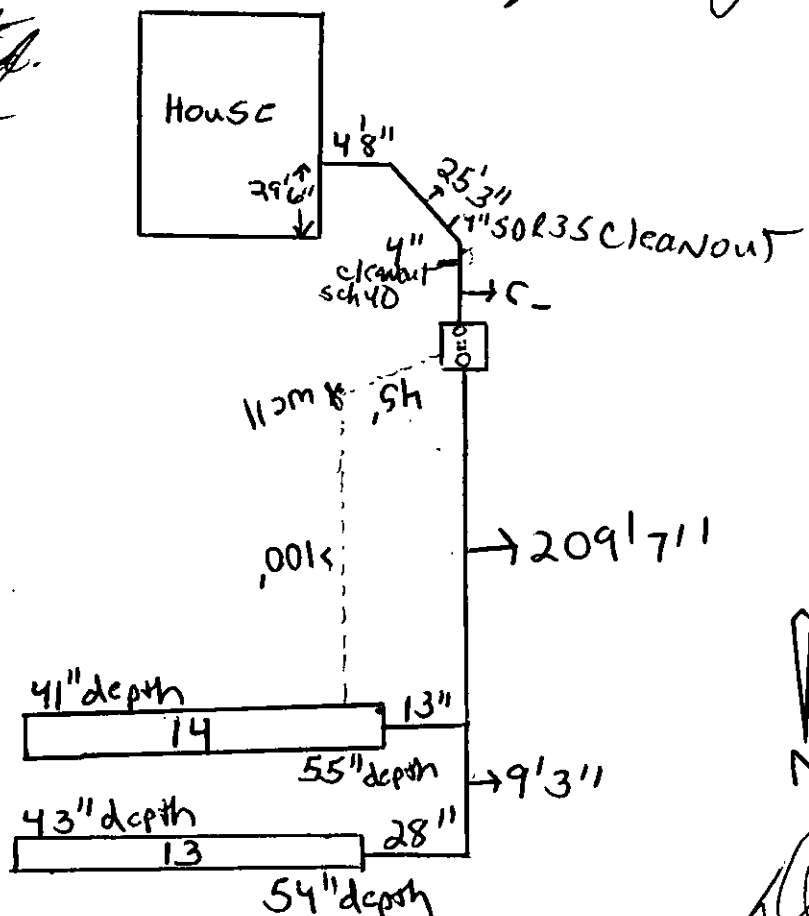 House
4'8"
29'6"
25'3"
4" SDR35 Cleanout
4"
cleanout
sch40
well
45'
>100'
209'7"
41" depth
13"
14
55" depth
9'3"
43" depth
28"
13
54" depth